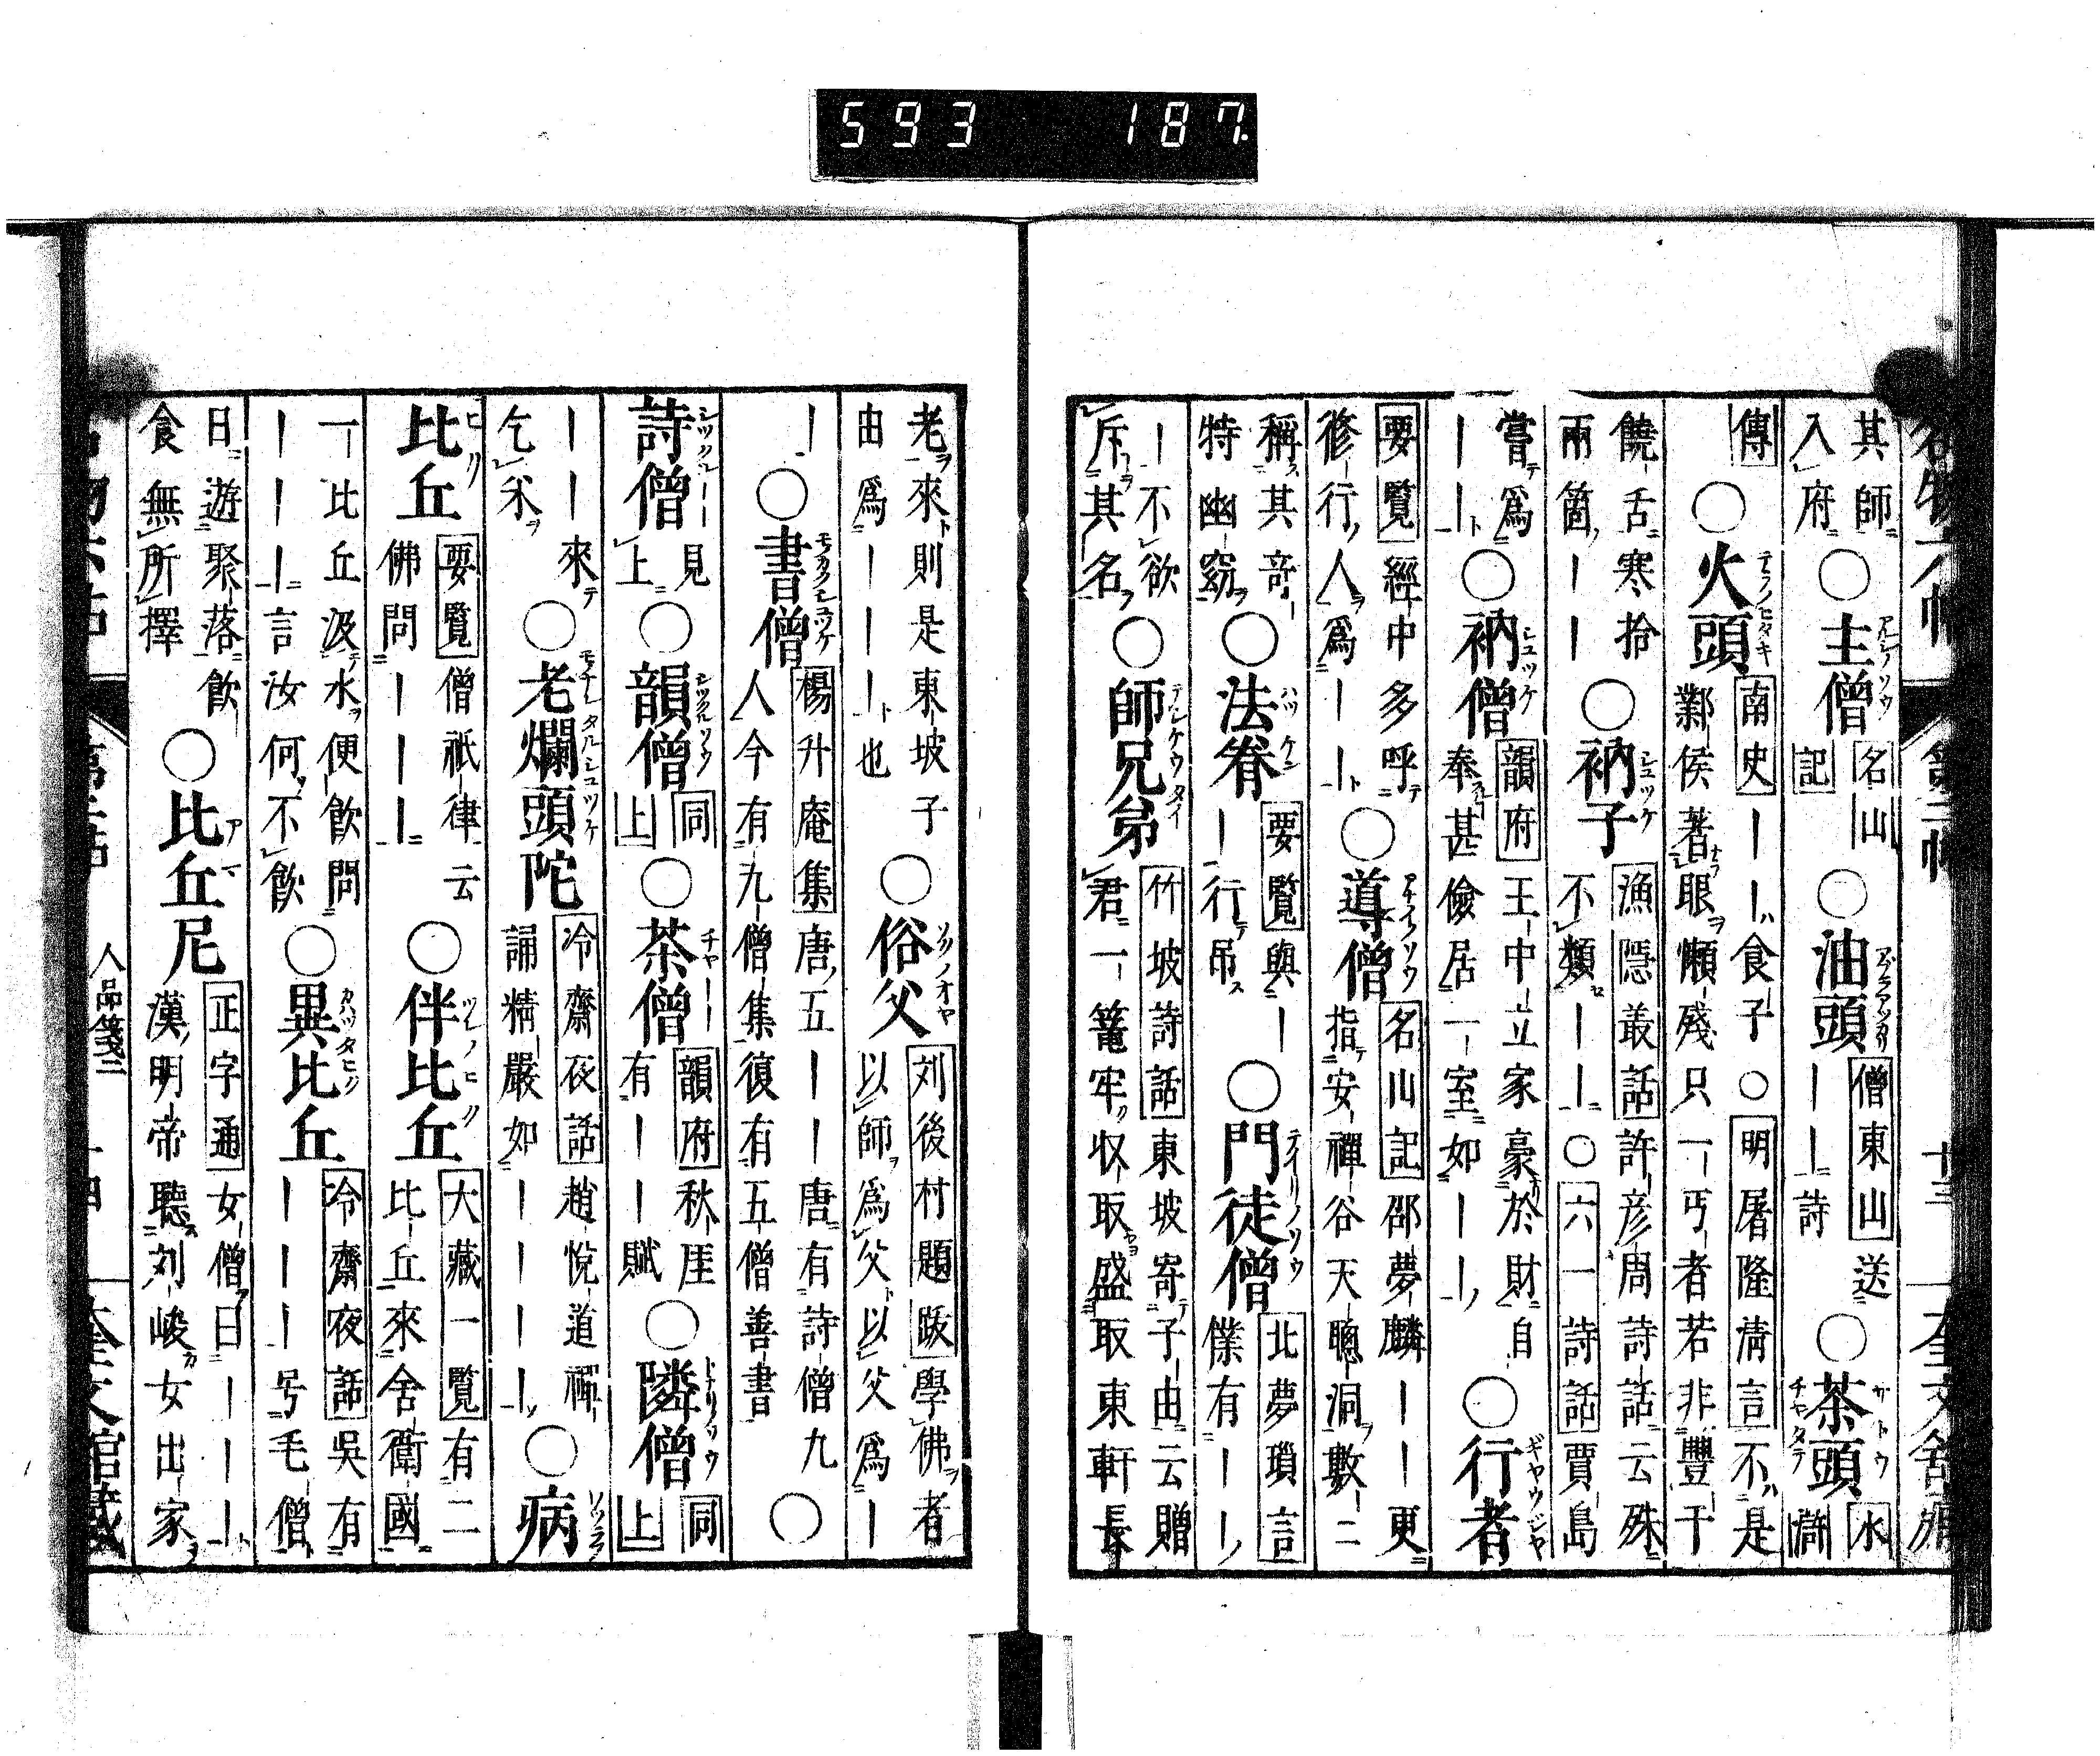 593 187
名物六帖 第二帖 十三
其師入府○主僧名山記○油頭僧東山送――詩○茶頭水滸
傳○火頭南史――食子○明屠隆清言不是鄴侯著眼懶殘只一丐者若非豐干
饒舌寒拾兩箇――○衲子漁隱叢話許彦周詩話云殊不類――○六一詩話賈島
嘗爲――○衲僧韻府王中立家豪於財自奉甚儉居一室如――○行者
要覽經中多呼修行人爲――○導僧名山記邵夢麟――更指安禪谷天聰洞數二
稱其奇特幽窈○法眷要覽與――行弔○門徒僧北夢瑣言僕有――
―不欲斥其名○師兄弟竹坡詩話東坡寄子由云贈君一篭牢収取盛取東軒長
老來則是東坡子由爲―――也○俗父刘後村題跋學佛者以師爲父以父爲―
―○書僧楊升庵集唐五――唐有詩僧九人今有九僧集復有五僧善書○
詩僧見上○韻僧同上○茶僧韻府秋厓有――賦○隣僧同上
――來乞米○老爛頭陀冷齋夜話趙悅道禪誦精嚴如――――○病
比丘要覽僧祇律云佛問―――○伴比丘大藏一覽有二比丘來舍衛國
一比丘汲水便飲問―――言汝何不飲○異比丘冷齋夜話吳有―――号毛僧
日遊聚落飲食無所擇○比丘尼正字通女僧曰―――漢明帝聽刘峻女出家
人品箋二